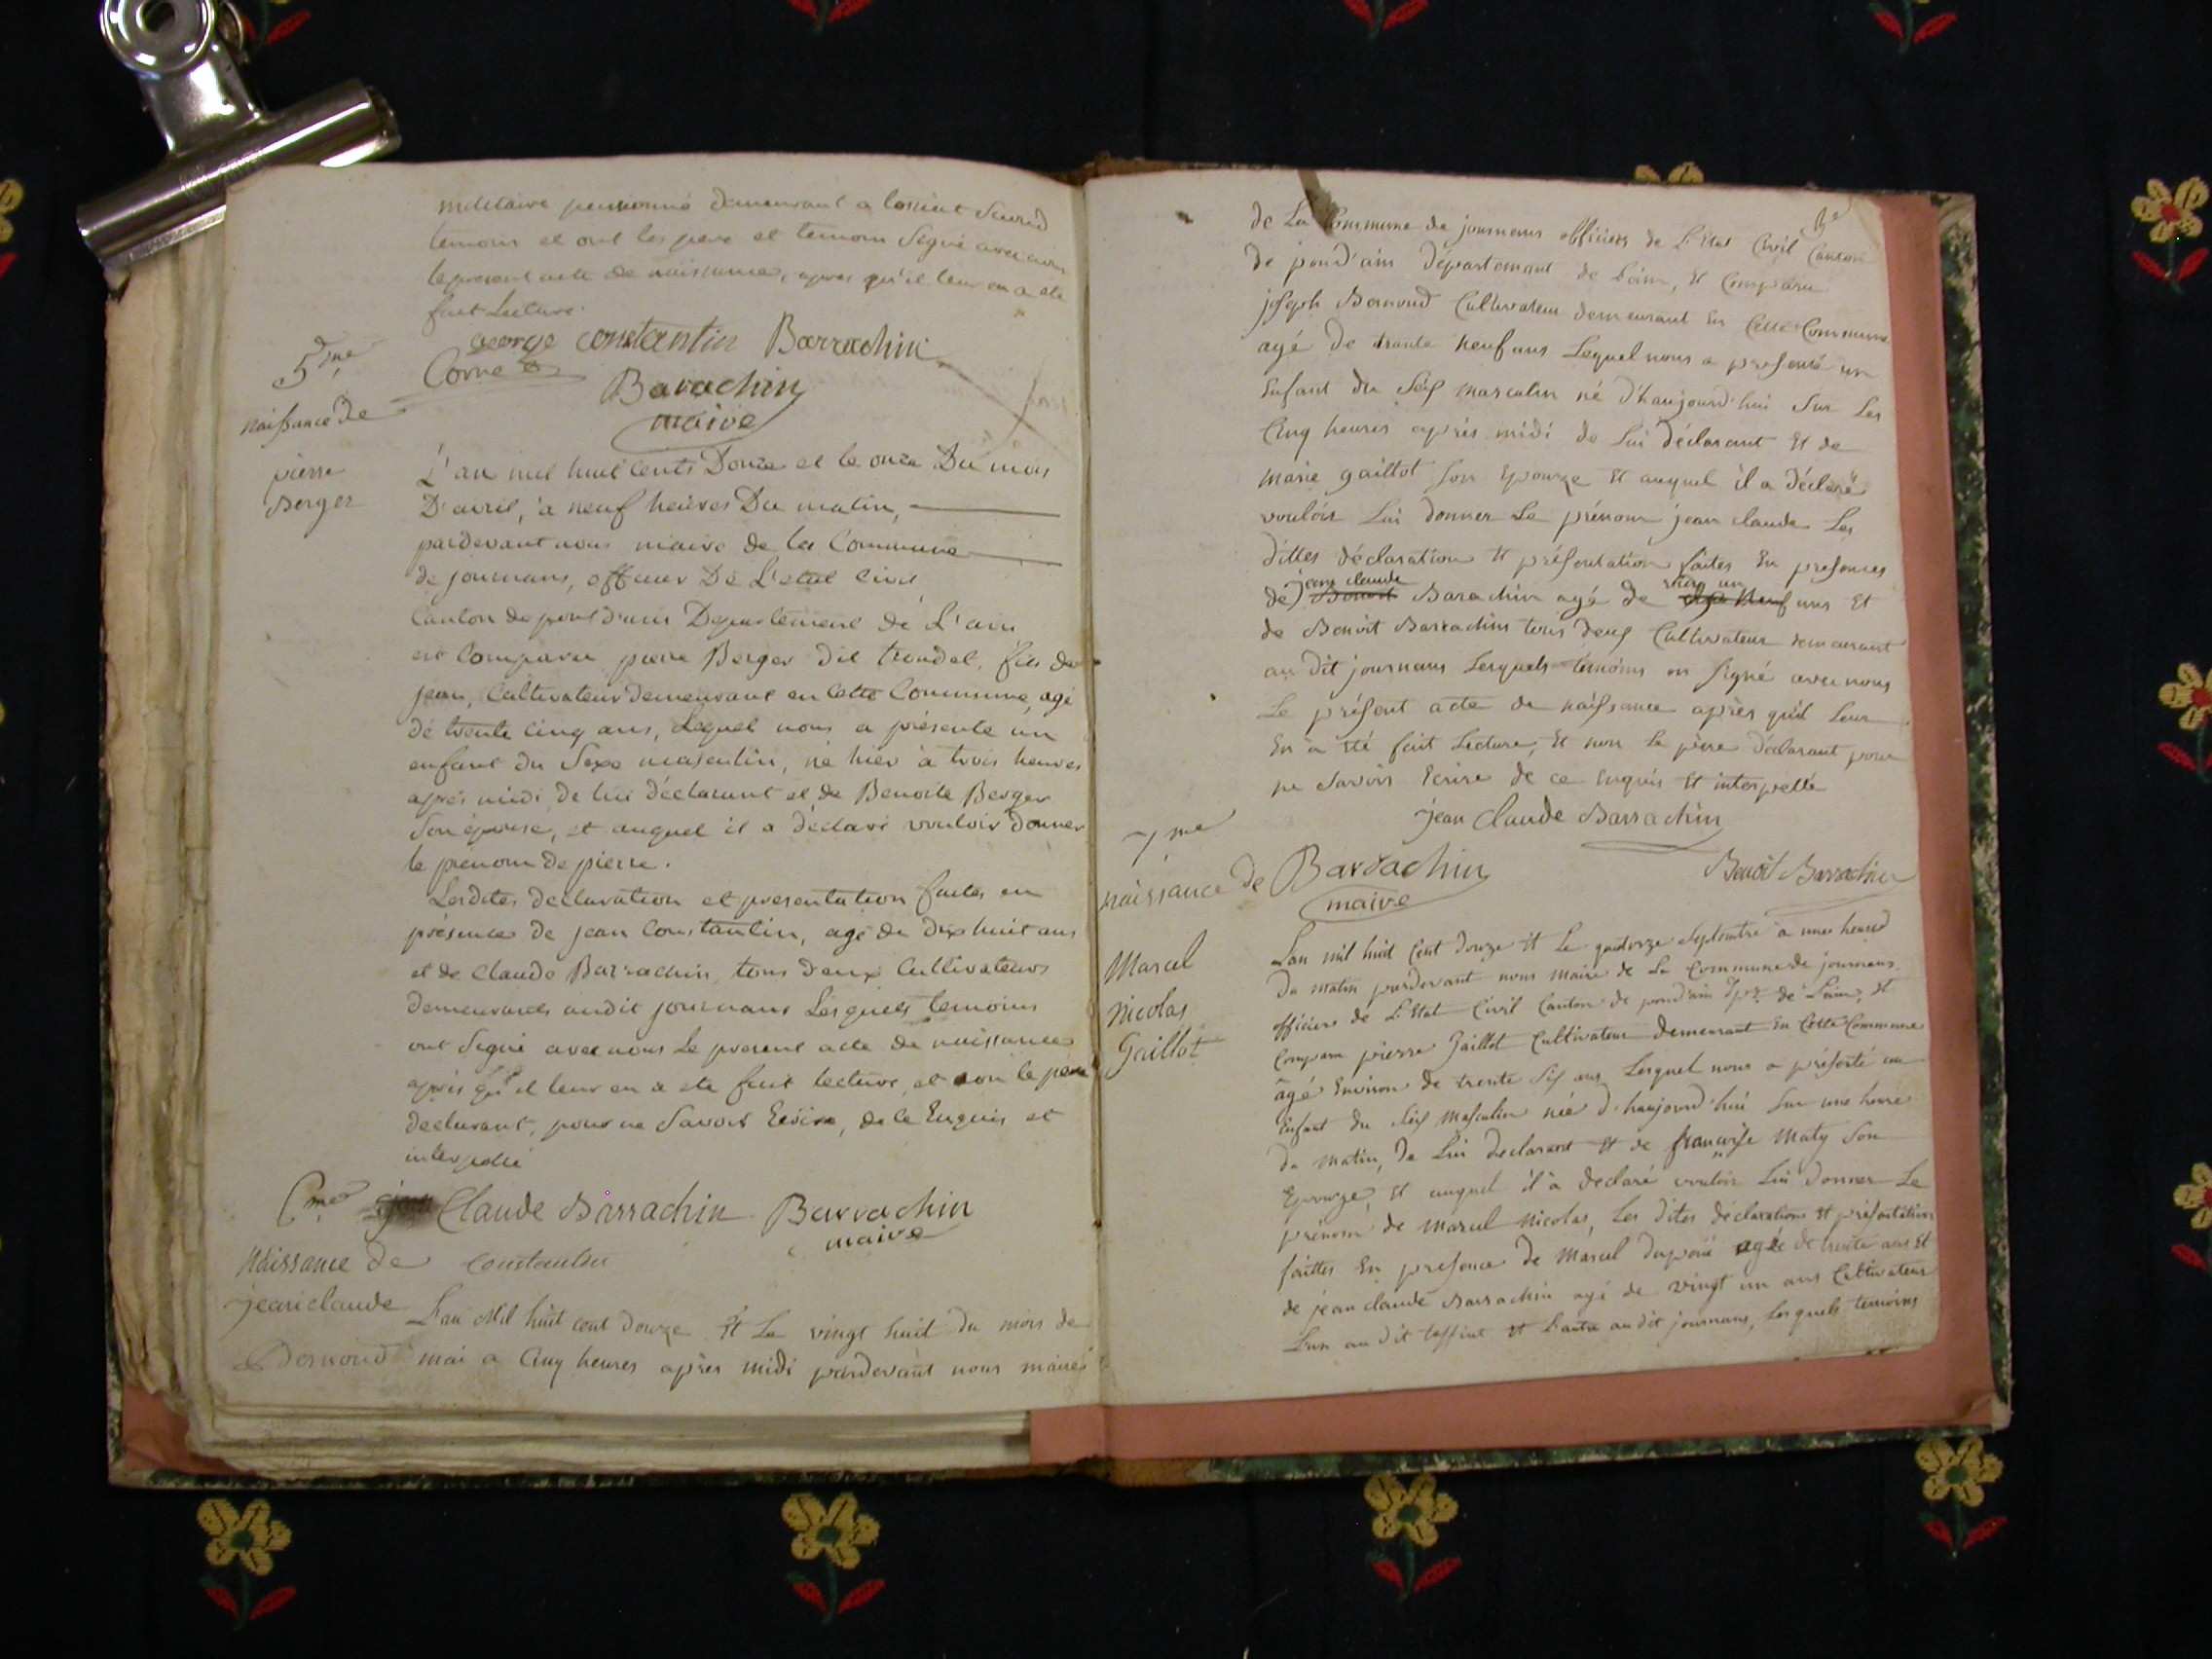 militaire pensionné demeurant a
temoins et ont les pere et temoin Signé avec nous
le present acte de naissance, apres qu'il leur en a ete
fait Lecture.
george constantin Barrachin
Corne
Barachin
maire
5me
naissance de
pierre
Berger
L'an mil huit cents Douze et le onze Du mois
D'avril, à neuf heures Du matin,
pardevant nous maire de la Commune
de journans, officier De L'etat civil
Canton de pont d'ain Departement de L'ain
est Comparu pierre Berger dit trondel, fils de
jean, Cultivateur demeurant en cette Commune, agé
de trente cinq ans, Lequel nous a présenté un
enfant du Sexe masculin, né hier à trois heures
après midi de lui déclarant et de Benoite Berger
Son épouse, et auquel il a déclaré vouloir donner
le prenom de pierre.
Lesdites declaration et presentation faites en
présence de jean Constantin, agé de dix huit ans
et de Claude Barrachin, tous deux Cultivateurs
demeurants audit journans Lesquels temoins
ont Signé avec nous Le present acte de naissance
après qu'il leur en a ete fait lecture, et non le pere
declarant, pour ne Savoir Ecrire, de ce Enquis et
interpellé
Claude Barrachin Barrachin
maire
Constantin
6me
Naissance de
jean claude
Bornoud
L'an Mil huit cent douze Et Le vingt huit du mois de
mai a Cinq heures après midi pardevant nous maire
de La Commune de journans officiers de L'Etat Civil Canton
de pond'ain département de L'ain, Et Comparu
joseph Bornoud Cultivateur demeurant En Cette Commune
agé de trante neuf ans Lequel nous a presenté un
Enfant du Seix masculin né d'haujourd'hui Sur Les
Cinq heures après midi de Lui déclarant Et de
marie gaillot Son Epouze Et auquel il a déclaré
vouloir Lui donner Le prénom jean claude Les
dittes déclaration Et présentation faites En presences
jean claude
de Benoit Barachin agé de neuf ans Et
de Benoit Barrachin tous deux Cultivateur demeurant
au dit journans Lesquels témoins on signé avec nous
Le présent acte de naissance après qu'il Leur
En a été fait Lecture, Et non Le père déclarant pour
ne Savoir Ecrire de ce Enquis Et interpellé
jean Claude Barrachin
Benoit Barrachin
Barrachin
maire
7me
naissance de
Marcel
Nicolas
Gaillot
L'an mil huit Cent douze Et Le quatorze Septembre à une heures
du matin pardevant nous maire de La Commune de journans
officiers de L'Etat Civil Canton de pond'ain Dpt de L'ain, Et
Comparu pierre Gaillot Cultivateur demeurant En Cette Commune
agé Environ de trente Six ans Lesquel nous a présenté un
Enfant du Seix masculin née d'haujourd'hui Sur une heure
du matin, de Lui déclarant Et de françoise Maty Son
Epouze, Et auquel il a déclaré vouloir Lui donner Le
prénom de marcel Nicolas, Les dites déclarations Et présentation
faittes En presence de Marcel agée de trente ans Et
de jean claude Barrachin agé de vingt un ans Cultivateur
L'un au dit toffiat Et L'autre au dit journans, Lesquels temoins